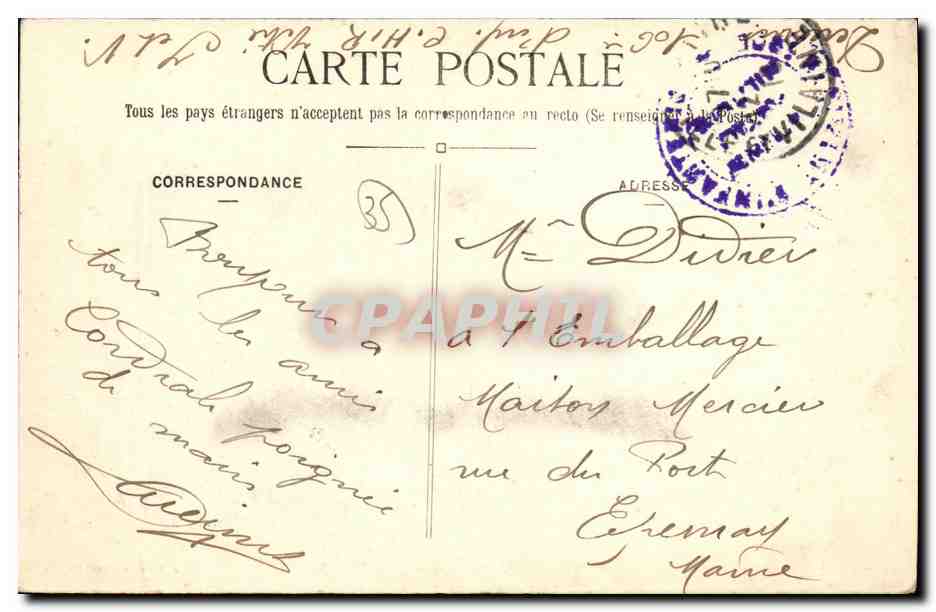 CARTE POSTALE
Tous les pays étrangers n'acceptent pas la correspondance au recto (Se renseigner à la Poste)
CORRESPONDANCE
ADRESSE
35
Bonjour a
tous les amis
Cordiale poignée
de mains
Mr Didier
a l'Emballage
Maison Mercier
rue du Port
Epernay
Marne
CPAPHIL
D'INFANTERIE